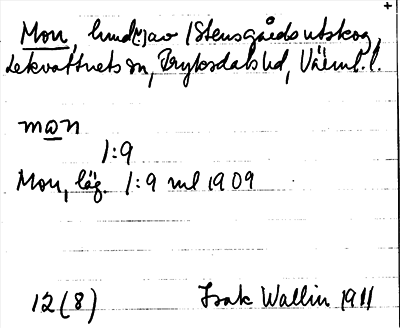 Mon, hmd[?] av /Stensgårds utskog,
Lekvattnets sn, Fryksdals hd, Värml. l.
mωn
1:9
Mon, läg. 1:9 ml 1909
12(8) Isak Wallin 1911